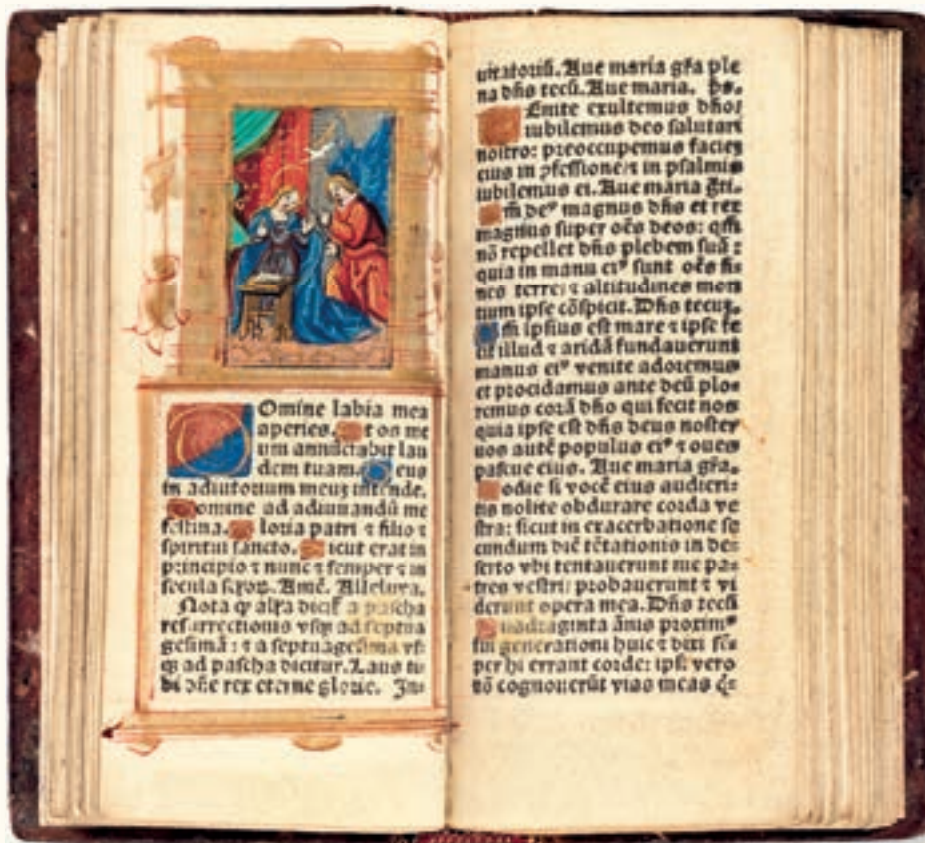 Domine labia mea
aperies. t os me
um annūctabit lau
dem tuam. eus
in adiutorium meuʒ intende.
omine ad adiuuandū me
festina. loria patri ⁊ filio ⁊
spiritui sancto. icut erat in
principio ⁊ nunc ⁊ semper ⁊ in
secula Amē. Alleluya.
Nota ꝙ a pascha
resurrectionis vsqꝫ ad septua
gesimā: ⁊ a septuagesima vs
qꝫ ad pascha dicitur. Laus ti
bi dn̄e rex eterne glorie. In-
uitatoriū. Aue maria gr̄a ple
na dn̄s tecū. Aue maria. ps.
Enite exultemus dn̄o:
iubilemus deo salutari
nostro: preoccupemus faciem
eius in ꝓfessione: ⁊ in psalmis
iubilemus ei. Aue maria
m̄ deꝰ magnus dn̄s et rex
magnus super oēs deos: qm̄
nō repellet dn̄s plebem suā:
quia in manu eiꝰ sunt oēs fi-
nes terre: ⁊ altitudines mon
tium ipse cōspicit. Dn̄s tecuʒ.
m̄ ipsius est mare ⁊ ipse fe
cit illud ⁊ aridā fundauerunt
manus eiꝰ venite adoremus
et procidamus ante deū plo-
remus corā dn̄o qui fecit nos
quia ipse est dn̄s deus noster
nos autē populus eiꝰ ⁊ oues
pascue eius. Aue maria gr̄a.
odie si vocē eius audieri-
tis nolite obdurare corda ve
stra: sicut in exacerbatione se
cundum diē tētationis in de-
serto vbi tentauerunt me pa-
tres vestri: probauerunt ⁊ vi
derunt opera mea. Dn̄s tecū
uadraginta ānis proximꝰ
fui generationi huic ⁊ dixi sē-
per hi errant corde: ipsi vero
nō cognouerūt vias meas